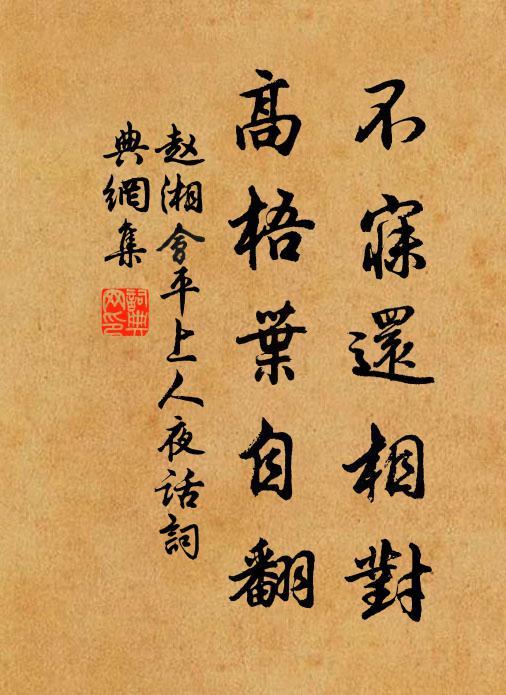 不寐還相對
高梧葉自翻
赵湘會平上人夜话詞
典網集
詞典
网印